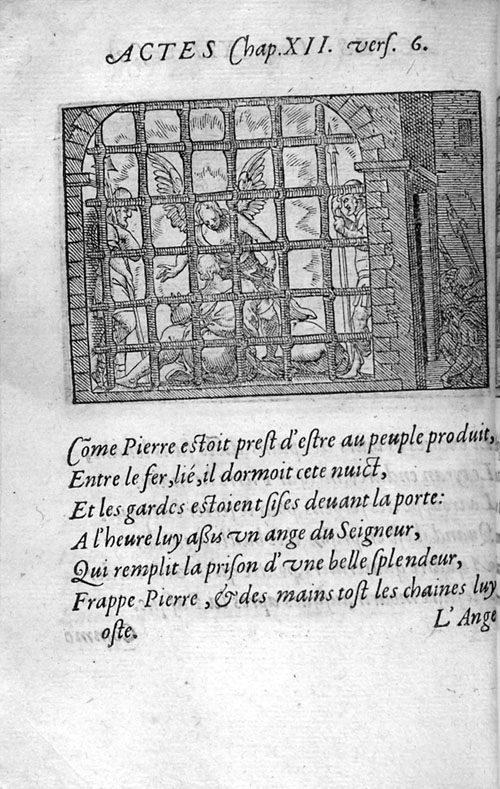 ACTES Chap. XII. verſ. 6.
Cõme Pierre eſtoit preſt d'eſtre au peuple produit,
Entre le fer, lié, il dormoit cete nuict,
Et les gardes eſtoient ſiſes deuant la porte:
A l'heure luy aßiſ vn ange du Seigneur,
Qui remplit la priſon d'vne belle ſplendeur,
Frappe Pierre, & des mains toſt les chaines luy
oſte.
L'Ange